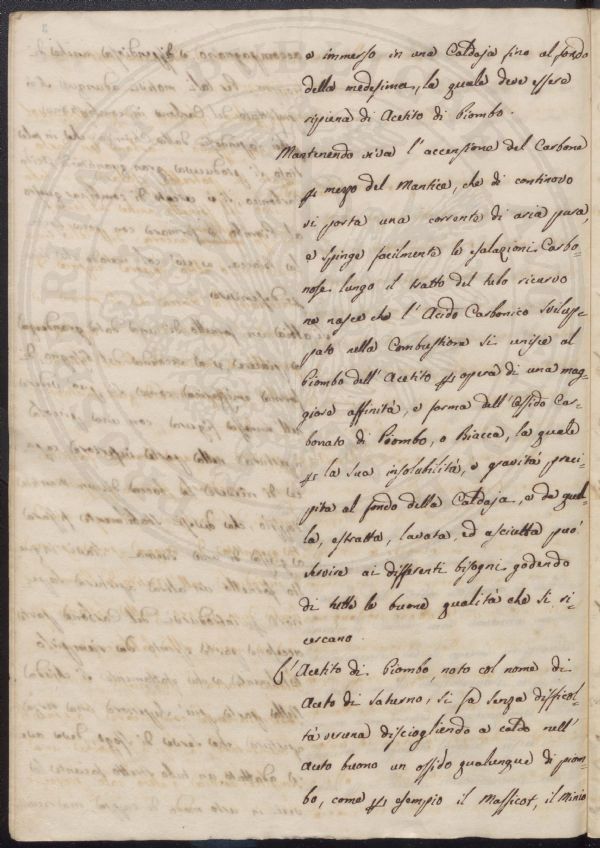 e immerso in una Caldaja fino al fondo
della medesima, la quale deve essere
ripiena di Acetito di Piombo.
Mantenendo viva l'accensione del Carbone
per mezzo del Mantice, che di continovo
vi porta una corrente di aria pura,
e spinge facilmente le esalazioni Carbo-
nose lungo il tratto del tubo ricurvo
ne nasce che l'Acido Carbonico svilup-
pato nella Combustione si unisce al
Piombo dell'Acetito per opera di una mag-
giore affinità, e forma dell'Ossido Car-
bonato di Piombo, o Biacca, la quale
per la sua insolubilità, e gravità preci-
pita al fondo della Caldaja, e da quel-
la, estratta, lavata, ed asciutta può
servire ai differenti bisogni godendo
di tutte le buone qualità che si ri-
cercano.
L'Acetito di Piombo, noto col nome di
Aceto di Saturno, si fa senza difficol-
tà veruna disciogliendo a caldo nell'
aceto buono un ossido qualunque di piom-
bo, come per esempio il Massicot, il Minio